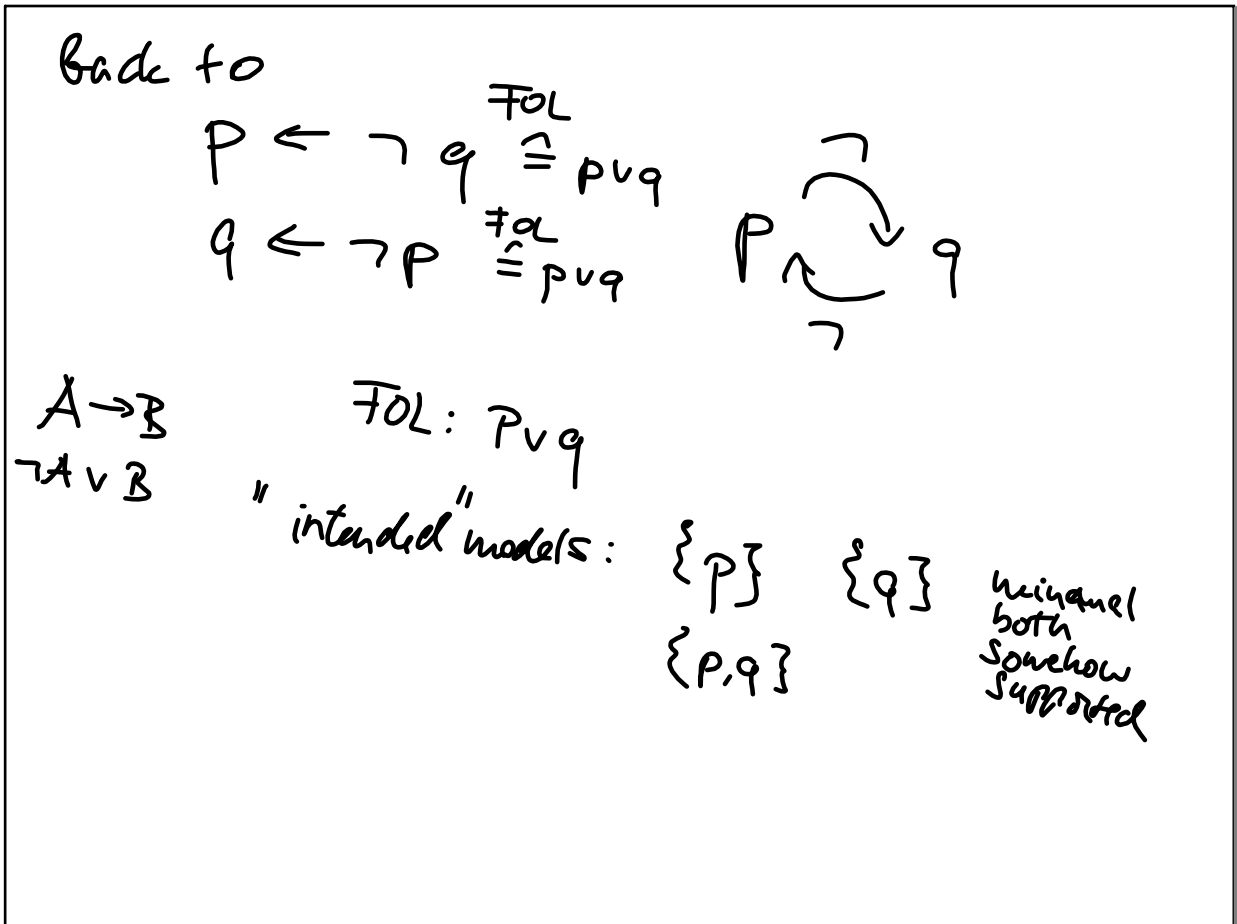 Back to
p ← ¬ q ≙ p ∨ q
FOL
q ← ¬ p ≙ p ∨ q
FOL
¬
p q
¬
A → B
¬A ∨ B
FOL: p ∨ q
"intended" models: {p} {q}
{p,q}
minimal
both
somehow
supported